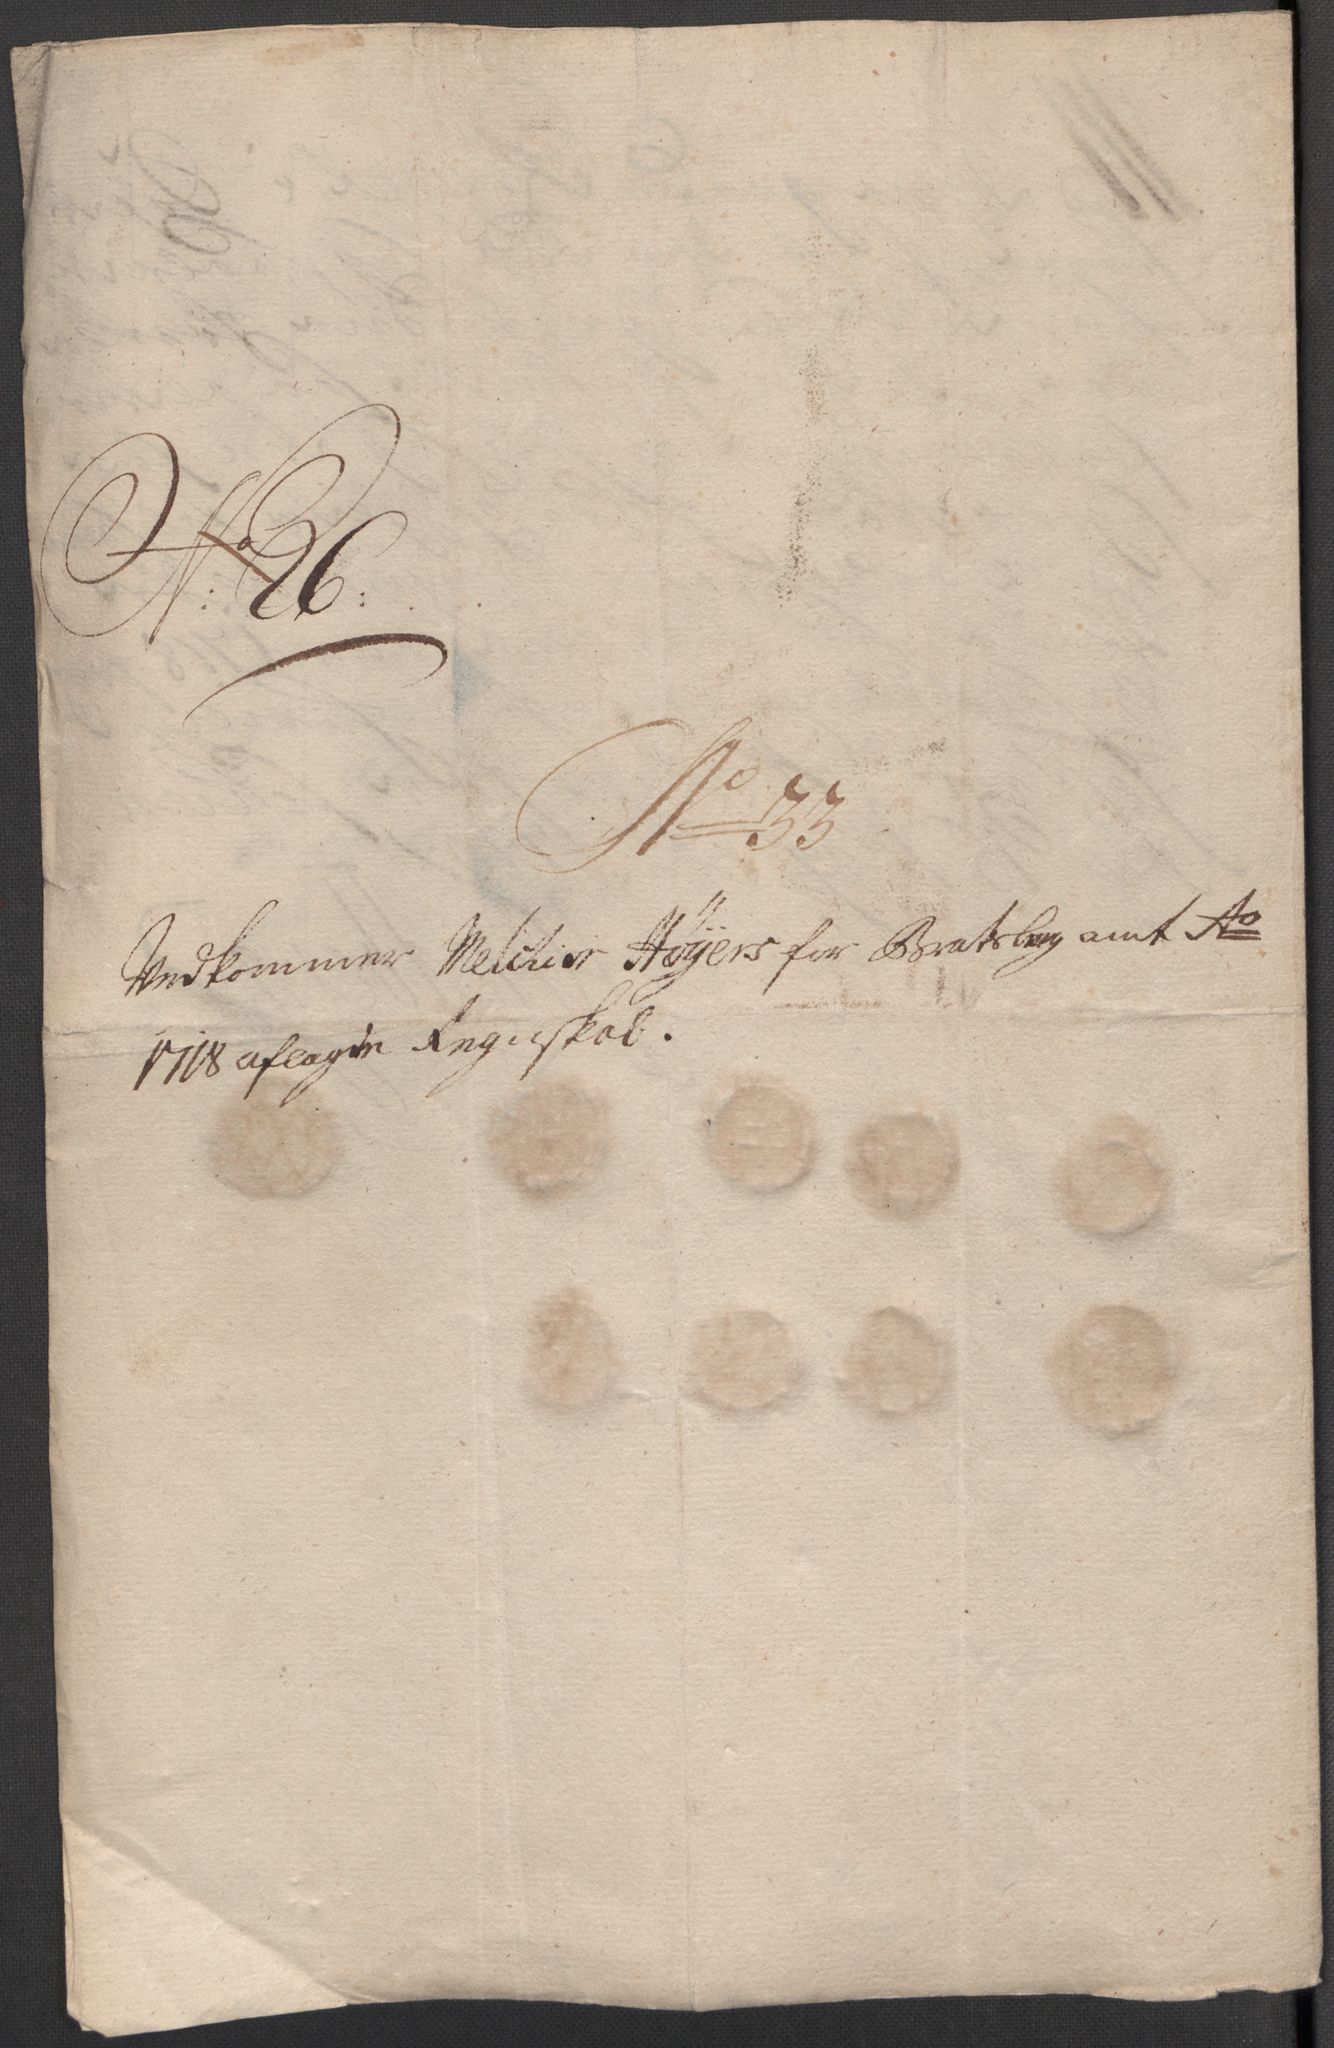 No: 26:
No 33
Vedkommer Melchior Höÿers for Bratsberg amt Ao
1718 aflagde Regnskab.